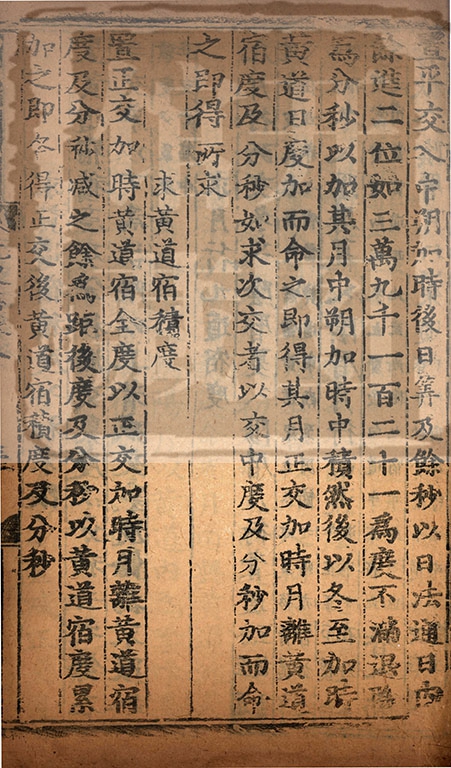 置平交入中朔加時後日算及餘秒以日法通日內
餘進二位如三萬九千一百二十一爲度不滿退除
爲分秒以加其月中朔加時中積然後以冬至加時
黃道日度加而命之即得其月正交加時月離黃道
宿度及分秒如求次交者以交中度及分秒加而命
之即得所求
求黃道宿積度
置正交加時黃道宿全度以正交加時月離黃道宿
度及分秒減之餘爲距後度及分秒以黃道宿度累
加之即各得正交後黃道宿積度及分秒